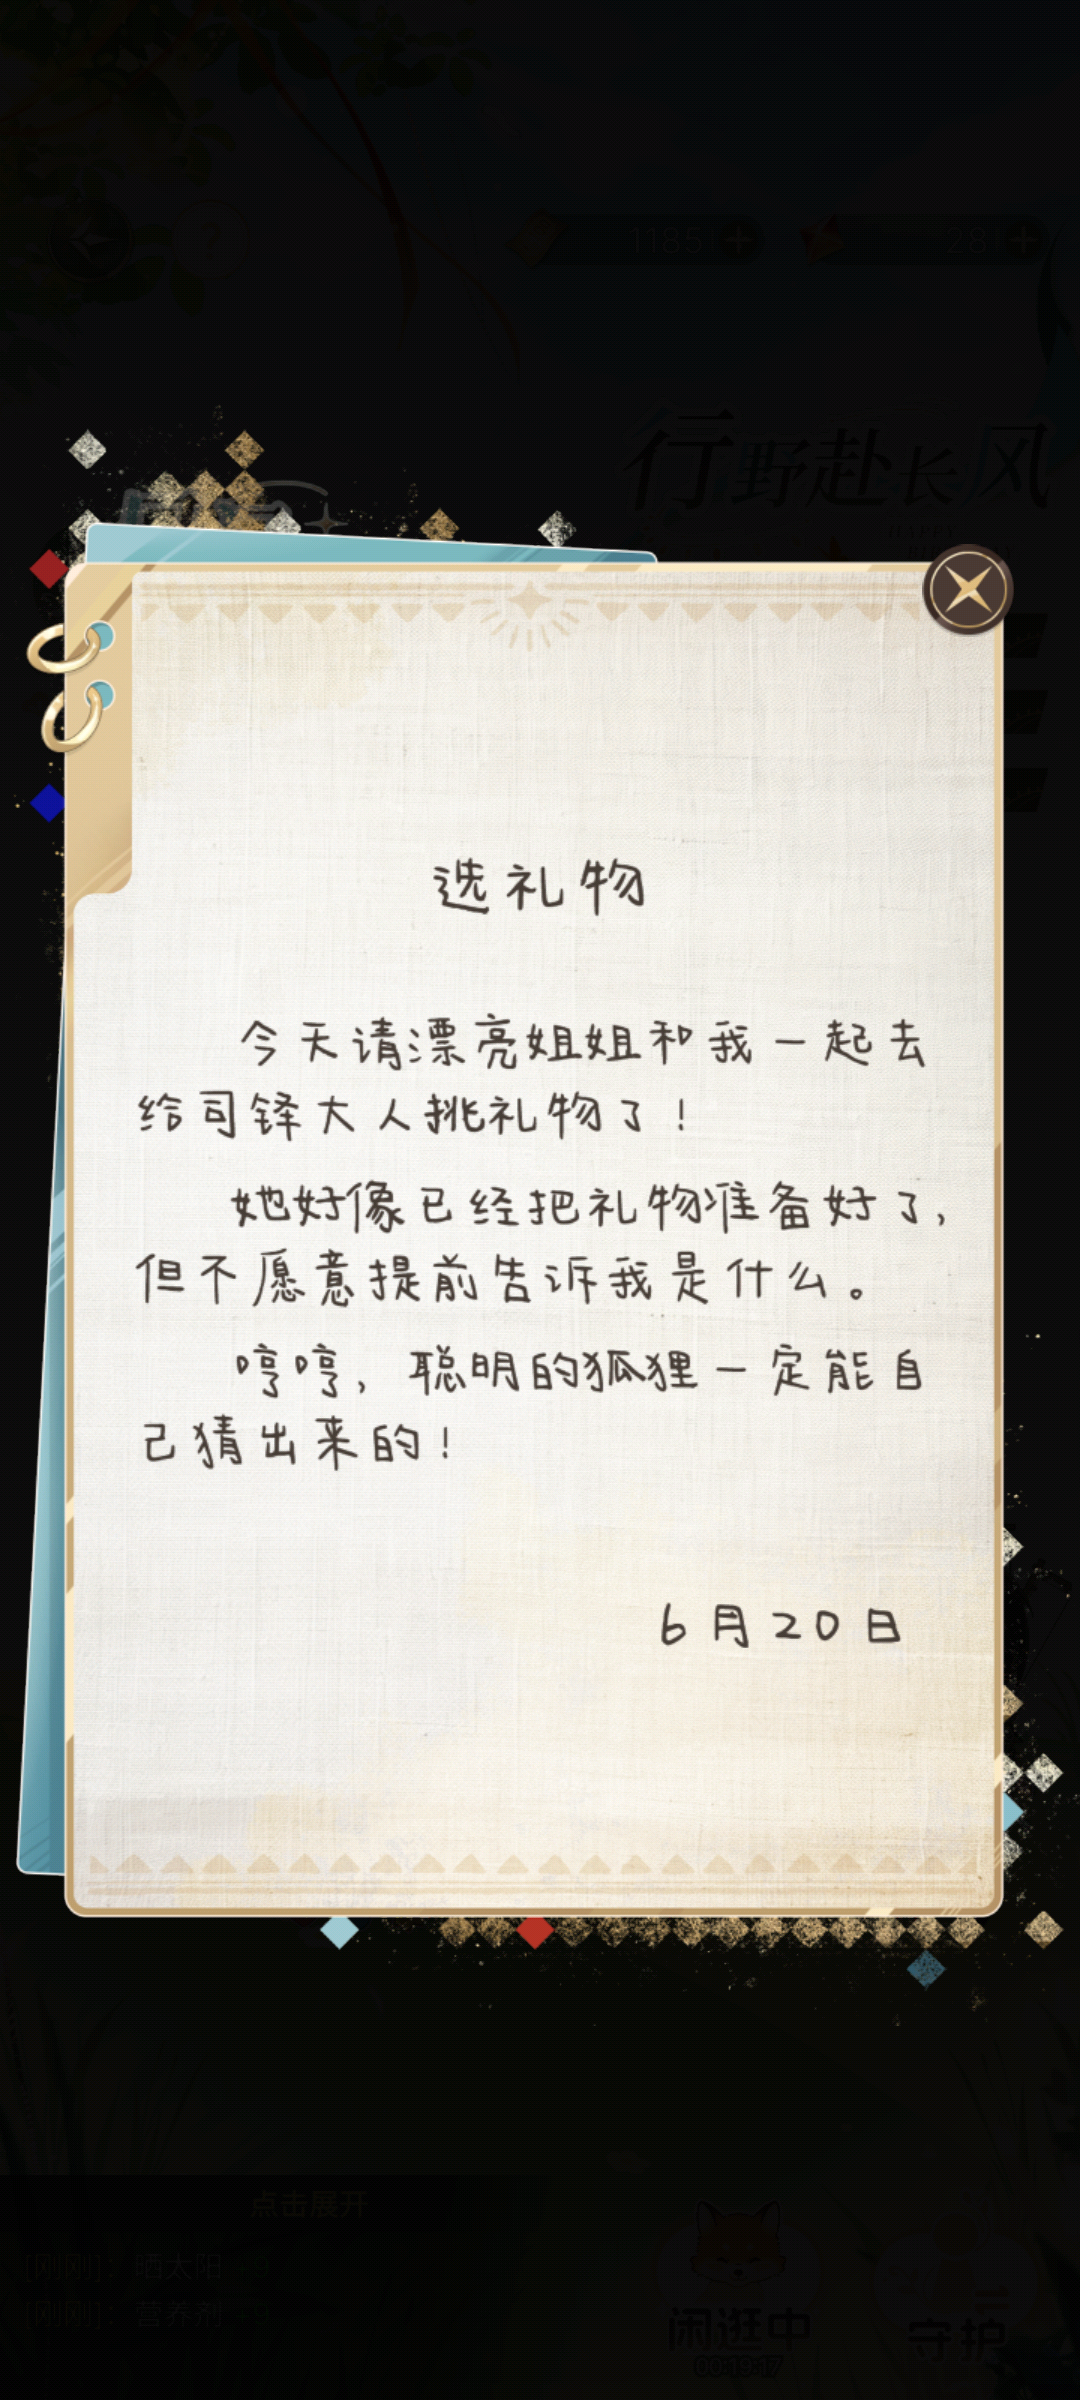 1185
28
行野赴长风
选礼物
今天请漂亮姐姐和我一起去
给司铎大人挑礼物了！
她好像已经把礼物准备好了，
但不愿意提前告诉我是什么。
哼哼，聪明的狐狸一定能自
己猜出来的！
6月20日
点击展开
[刚刚]：晒太阳
[刚刚]：营养剂
闲逛中
00:19:17
守护